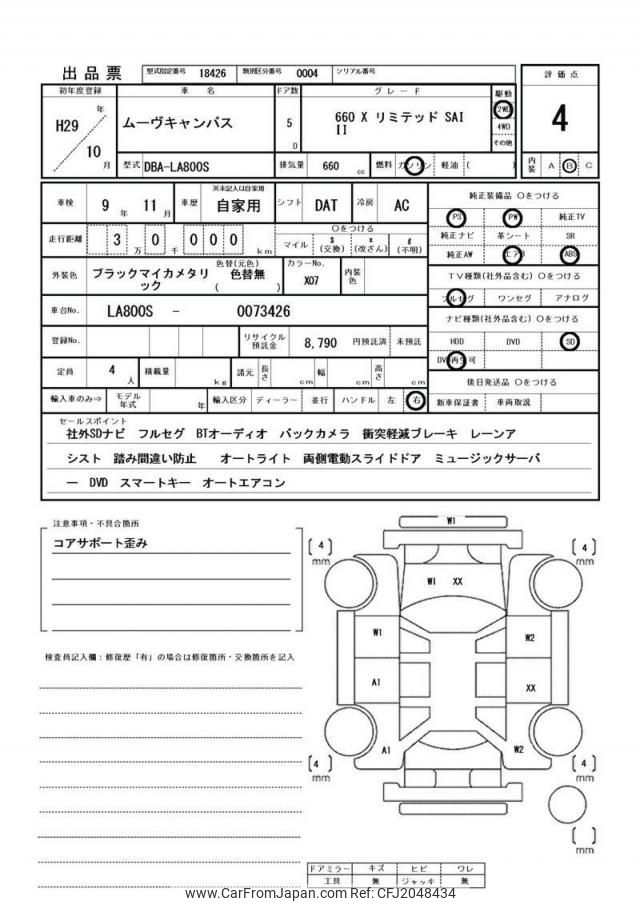 出品票 型式指定番号 18426 類別区分番号 0004 シリアル番号
評価点
4
内装 A B C
初年度登録 車名 ドア数 グレード 駆動
H29 年 10 月
ムーヴキャンバス
5 D
660 X リミテッド SAI
II
2WD
4WD
その他
型式 DBA-LA800S 排気量 660 cc 燃料 ガソリン 軽油 ( )
車検 9 年 11 月 車歴 ※未記入は自家用 自家用 シフト DAT 冷房 AC
走行距離 3 万 0 千 0 0 0 km
○をつける
マイル $ (交換) x (改ざん) # (不明)
外装色 ブラックマイカメタリ
ック
色替(元色)
色替無
( )
カラーNo.
X07
内装色
車台No. LA800S - 0073426
登録No. リサイクル預託金 8,790 円預託済 未預託
定員 4 人 積載量 kg 諸元 長さ cm 幅 cm 高さ cm
輸入車のみ⇒ モデル年式 年 輸入区分 ディーラー 並行 ハンドル 左 右
純正装備品 ○をつける
PS PW 純正TV
純正ナビ 革シート SR
純正AW エアB ABS
TV種類(社外品含む) ○をつける
フルセグ ワンセグ アナログ
ナビ種類(社外品含む) ○をつける
HDD DVD SD
DVD再生可
後日発送品 ○をつける
新車保証書 車両取説
セールスポイント
社外SDナビ フルセグ BTオーディオ バックカメラ 衝突軽減ブレーキ レーンア
シスト 踏み間違い防止 オートライト 両側電動スライドドア ミュージックサーバ
ー DVD スマートキー オートエアコン
注意事項・不具合箇所
コアサポート歪み
検査員記入欄：修復歴「有」の場合は修復箇所・交換箇所を記入
W1
4 mm
4 mm
W1 XX
W1
W2
A1
XX
A1
W2
4 mm
4 mm
mm
ドアミラー キズ ヒビ ワレ
工具 無 ジャッキ 無
www.CarFromJapan.com Ref: CFJ2048434